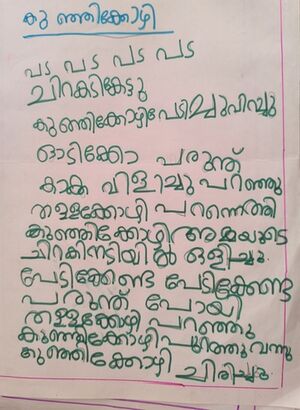 കുഞ്ഞിക്കോഴി
പട പട പട പട
ചിറകടികേട്ടു
കുഞ്ഞിക്കോഴിപേടിച്ചുവിറച്ചു
ഓടിക്കോ പരുന്ത്
കാക്ക വിളിച്ചു പറഞ്ഞു
തള്ളക്കോഴി പറന്നെത്തി
കുഞ്ഞിക്കോഴി അമ്മയുടെ
ചിറകിനടിയിൽ ഒളിച്ചു.
പേടിക്കേണ്ട പേടിക്കേണ്ട
പരുന്ത് പോയി
തള്ളക്കോഴി പറഞ്ഞു
കുഞ്ഞിക്കോഴി പുറത്തുവന്നു
കുഞ്ഞിക്കോഴി ചിരിച്ചു.